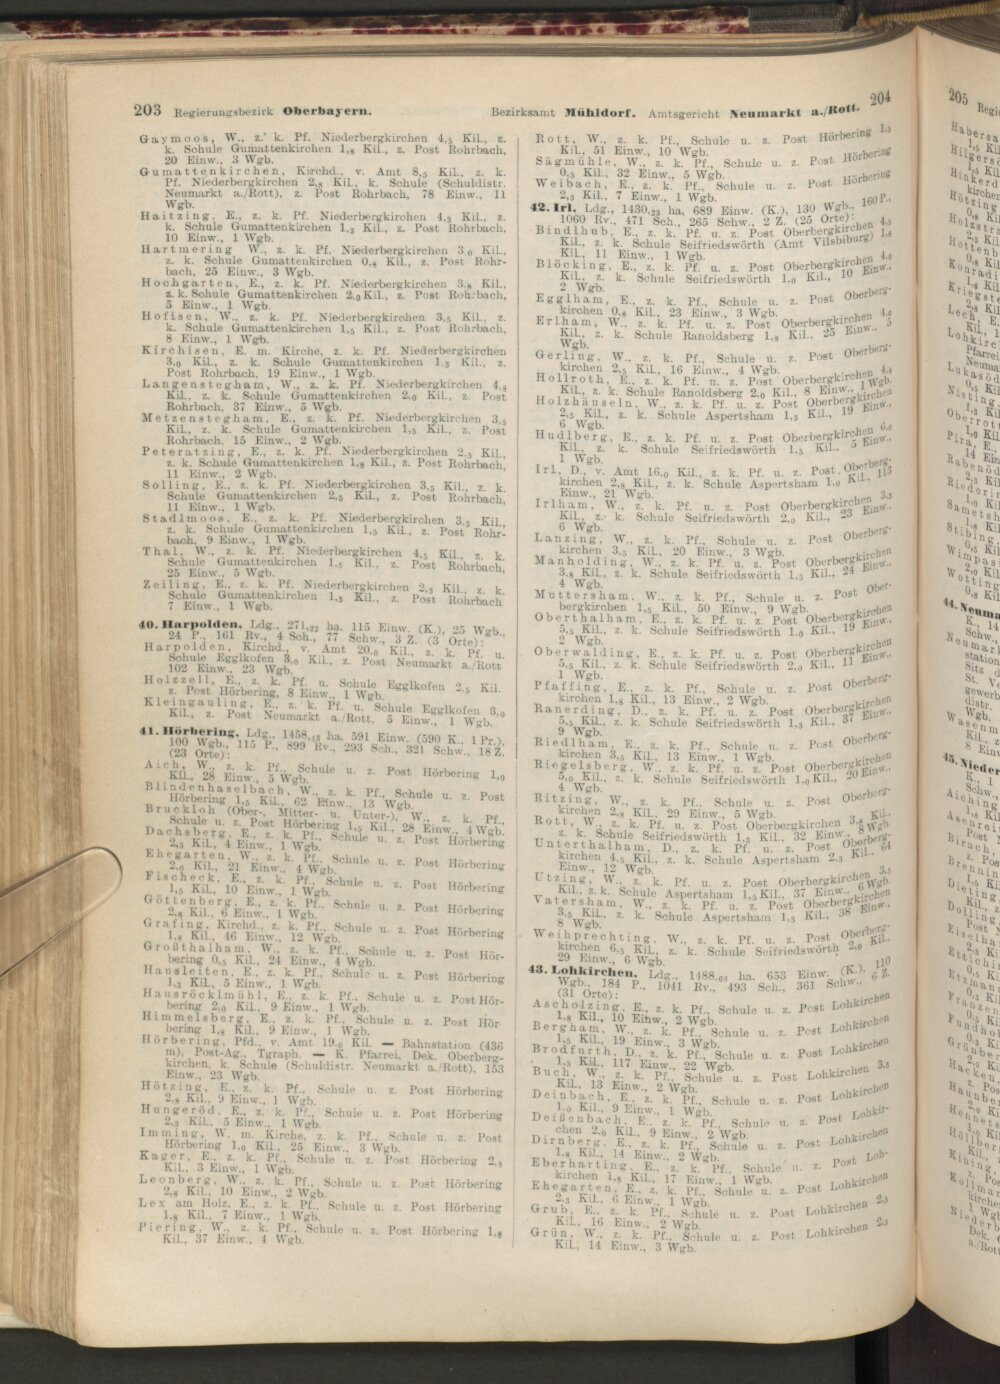 203 Regierungsbezirk Oberbayern.
Gaymoos, W., z. k. Pf. Niederbergkirchen 4,5 Kil., z.
k. Schule Gumattenkirchen 1,8 Kil., z. Post Rohrbach,
20 Einw., 3 Wgb.
Gumattenkirchen, Kirchd., v. Amt 8,5 Kil., z. k.
Pf. Niederbergkirchen 2,8 Kil., k. Schule (Schuldistr.
Neumarkt a./Rott), z. Post Rohrbach, 78 Einw., 11
Wgb.
Haitzing, E., z. k. Pf. Niederbergkirchen 4,3 Kil., z.
k. Schule Gumattenkirchen 1,5 Kil., z. Post Rohrbach,
10 Einw., 1 Wgb.
Hartmering W., z. k. Pf. Niederbergkirchen 3,0 Kil.,
z. k. Schule Gumattenkirchen 0,8 Kil., z. Post Rohr-
bach, 25 Einw., 3 Wgb.
Hochgarten, E., z. k. Pf. Niederbergkirchen 3,8 Kil.,
z. k. Schule Gumattenkirchen 2,0 Kil., z. Post Rohrbach,
5 Einw., 1 Wgb.
Hofisen, W., z. k. Pf. Niederbergkirchen 3,5 Kil., z.
k. Schule Gumattenkirchen 1,5 Kil., z. Post Rohrbach,
8 Einw., 1 Wgb.
Kirchisen, E. m. Kirche, z. k. Pf. Niederbergkirchen
3,0 Kil., z. k. Schule Gumattenkirchen 1,5 Kil., z.
Post Rohrbach, 19 Einw., 1 Wgb.
Langenstegham, W., z. k. Pf. Niederbergkirchen 4,8
Kil., z. k. Schule Gumattenkirchen 2,0 Kil., z. Post
Rohrbach, 37 Einw., 5 Wgb.
Metzenstegham, E., z. k. Pf. Niederbergkirchen 3,5
Kil., z. k. Schule Gumattenkirchen 1,5 Kil., z. Post
Rohrbach, 15 Einw., 2 Wgb.
Peteratzing, E., z. k. Pf. Niederbergkirchen 2,5 Kil.,
z. k. Schule Gumattenkirchen 1,8 Kil., z. Post Rohrbach,
11 Einw., 2 Wgb.
Solling, E., z. k. Pf. Niederbergkirchen 3,5 Kil., z. k.
Schule Gumattenkirchen 2,5 Kil., z. Post Rohrbach,
11 Einw., 1 Wgb.
Stadlmoos, E., z. k. Pf. Niederbergkirchen 3,5 Kil.,
z. k. Schule Gumattenkirchen 1,5 Kil., z. Post Rohr-
bach, 9 Einw., 1 Wgb.
Thal, W., z. k. Pf. Niederbergkirchen 4,5 Kil., z. k.
Schule Gumattenkirchen 1,5 Kil., z. Post Rohrbach,
25 Einw., 5 Wgb.
Zeiling, E., z. k. Pf. Niederbergkirchen 2,3 Kil., z. k.
Schule Gumattenkirchen 1,3 Kil., z. Post Rohrbach
7 Einw., 1 Wgb.
40. Harpolden, Ldg., 271,22 ha, 115 Einw. (K.), 25 Wgb.,
24 P., 161 Rv., 4 Sch., 77 Schw., 3 Z. (3 Orte):
Harpolden, Kirchd., v. Amt 20,0 Kil., z. k. Pf. u.
Schule Egglkofen 3,0 Kil., z. Post Neumarkt a./Rott
102 Einw., 23 Wgb.
Holzzell, E., z. k. Pf. u. Schule Egglkofen 2,5 Kil.
z. Post Hörbering, 8 Einw., 1 Wgb.
Kleingauling, E., z. k. Pf. u. Schule Egglkofen 3,0
Kil., z. Post Neumarkt a./Rott, 5 Einw., 1 Wgb.
41. Hörbering, Ldg., 1458,43 ha, 591 Einw. (590 K., 1 Pr.),
100 Wgb., 115 P., 899 Rv., 293 Sch., 321 Schw., 18 Z.
(23 Orte):
Aich, W., z. k. Pf., Schule u. z. Post Hörbering 1,0
Kil., 28 Einw., 5 Wgb.
Blindenhaselbach, W., z. k. Pf., Schule u. z. Post
Hörbering 1,5 Kil., 62 Einw., 13 Wgb.
Bruckloh (Ober-, Mitter- u. Unter-), W., z. k. Pf.,
Schule u. z. Post Hörbering 1,5 Kil., 28 Einw., 4 Wgb.
Dachsberg, E., z. k. Pf., Schule u. z. Post Hörbering
2,3 Kil., 4 Einw., 1 Wgb.
Ehegarten, W., z. k. Pf., Schule u. z. Post Hörbering
2,0 Kil., 21 Einw., 4 Wgb.
Fischeck, E., z. k. Pf., Schule u. z. Post Hörbering
1,5 Kil., 10 Einw., 1 Wgb.
Göttenberg, E., z. k. Pf., Schule u. z. Post Hörbering
2,8 Kil., 6 Einw., 1 Wgb.
Grafing, Kirchd., z. k. Pf., Schule u. z. Post Hörbering
1,8 Kil., 46 Einw., 12 Wgb.
Großthalham, W., z. k. Pf., Schule u. z. Post Hör-
bering 0,5 Kil., 24 Einw., 4 Wgb.
Hausleiten, E., z. k. Pf., Schule u. z. Post Hörbering
1,3 Kil., 5 Einw., 1 Wgb.
Hausröcklmühl, E., z. k. Pf., Schule u. z. Post Hör-
bering 2,0 Kil., 9 Einw., 1 Wgb.
Himmelsberg, E., z. k. Pf., Schule u. z. Post Hör
bering 1,8 Kil., 9 Einw., 1 Wgb.
Hörbering, Pfd., v. Amt 19,0 Kil. — Bahnstation (436
m), Post-Ag., Tgraph. — K. Pfarrei, Dek. Oberberg-
kirchen, k. Schule (Schuldistr. Neumarkt a./Rott), 153
Einw., 23 Wgb.
Hötzing, E., z. k. Pf., Schule u. z. Post Hörbering
2,8 Kil., 9 Einw., 1 Wgb.
Hungeröd, E., z. k. Pf., Schule u. z. Post Hörbering
2,3 Kil., 5 Einw., 1 Wgb.
Imming, W. m. Kirche, z. k. Pf., Schule u. z. Post
Hörbering 1,0 Kil., 25 Einw., 3 Wgb.
Kager, E., z. k. Pf., Schule u. z. Post Hörbering 2,8
Kil., 3 Einw., 1 Wgb.
Leonberg, W., z. k. Pf., Schule u. z. Post Hörbering
2,8 Kil., 10 Einw., 2 Wgb.
Lex am Holz, E., z. k. Pf., Schule u. z. Post Hörbering
1,8 Kil., 7 Einw., 1 Wgb.
Piering, W., z. k. Pf., Schule u. z. Post Hörbering 1,8
Kil., 37 Einw., 4 Wgb.
Bezirksamt Mühldorf. Amtsgericht Neumarkt a./Rott. 204
Rott, W., z. k. Pf., Schule u. z. Post Hörbering 1,5
Kil., 51 Einw., 10 Wgb.
Sägmühle, W., z. k. Pf., Schule u. z. Post Hörbering
0,5 Kil., 32 Einw., 5 Wgb.
Weibach, E., z. k. Pf., Schule u. z. Post Hörbering
2,3 Kil., 7 Einw., 1 Wgb.
42. Irl, Ldg., 1430,23 ha, 689 Einw. (K.), 130 Wgb., 160 P.,
1060 Rv., 471 Sch., 265 Schw., 2 Z. (25 Orte):
Bindlhub, E., z. k. Pf. u. z. Post Oberbergkirchen 4,5
Kil., z. k. Schule Seifriedswörth (Amt Vilsbiburg) 1,3
Kil., 11 Einw., 1 Wgb.
Blöcking, E., z. k. Pf. u. z. Post Oberbergkirchen 4,0
Kil., z. k. Schule Seifriedswörth 1,0 Kil., 10 Einw.,
2 Wgb.
Egglham, E., z. k. Pf., Schule u. z. Post Oberberg-
kirchen 0,8 Kil., 23 Einw., 3 Wgb.
Erlham, W., z. k. Pf. u. z. Post Oberbergkirchen 4,0
Kil., z. k. Schule Ranoldsberg 1,8 Kil., 25 Einw., 5
Wgb.
Gerling, W., z. k. Pf., Schule u. z. Post Oberberg-
kirchen 2,5 Kil., 16 Einw., 4 Wgb.
Hollroth, E., z. k. Pf. u. z. Post Oberbergkirchen 4,8
Kil., z. k. Schule Ranoldsberg 2,0 Kil., 8 Einw., 1 Wgb.
Holzhäuseln, W., z. k. Pf. u. z. Post Oberbergkirchen
2,5 Kil., z. k. Schule Aspertsham 1,3 Kil., 19 Einw.,
6 Wgb.
Hudlberg, E., z. k. Pf. u. z. Post Oberbergkirchen 6,0
Kil., z. k. Schule Seifriedswörth 1,5 Kil., 5 Einw.,
1 Wgb.
Irl, D., v. Amt 16,0 Kil., z. k. Pf. u. z. Post Oberberg-
kirchen 2,8 Kil., z. k. Schule Aspertsham 1,0 Kil., 113
Einw., 21 Wgb.
Irlham, W., z. k. Pf. u. z. Post Oberbergkirchen 3,3
Kil., z. k. Schule Seifriedswörth 2,0 Kil., 23 Einw.,
6 Wgb.
Lanzing, W., z. k. Pf., Schule u. z. Post Oberberg-
kirchen 3,5 Kil., 20 Einw., 3 Wgb.
Manholding, W., z. k. Pf. u. z. Post Oberbergkirchen
3,8 Kil., z. k. Schule Seifriedswörth 1,5 Kil., 24 Einw.,
4 Wgb.
Muttersham, W., z. k. Pf., Schule u. z. Post Ober-
bergkirchen 1,5 Kil., 50 Einw., 9 Wgb.
Oberthalham, E., z. k. Pf. u. z. Post Oberbergkirchen
5,5 Kil., z. k. Schule Seifriedswörth 1,0 Kil., 19 Einw.,
2 Wgb.
Oberwalding, E., z. k. Pf. u. z. Post Oberbergkirchen
5,5 Kil., z. k. Schule Seifriedswörth 2,0 Kil., 11 Einw.,
1 Wgb.
Pfaffing, E., z. k. Pf., Schule u. z. Post Oberberg-
kirchen 1,8 Kil., 13 Einw., 2 Wgb.
Ranerding, D., z. k. Pf. u. z. Post Oberbergkirchen
5,5 Kil., z. k. Schule Seifriedswörth 1,3 Kil., 37 Einw.,
9 Wgb.
Riedlham, E., z. k. Pf., Schule u. z. Post Oberberg-
kirchen 3,5 Kil., 13 Einw., 1 Wgb.
Riegelsberg, W., z. k. Pf. u. z. Post Oberbergkirchen
5,0 Kil., z. k. Schule Seifriedswörth 1,0 Kil., 20 Einw.,
4 Wgb.
Ritzing, W., z. k. Pf., Schule u. z. Post Oberberg-
kirchen 2,8 Kil., 29 Einw., 5 Wgb.
Rott, W., z. k. Pf. u. z. Post Oberbergkirchen 3,8 Kil.,
z. k. Schule Seifriedswörth 1,3 Kil., 32 Einw., 8 Wgb.
Unterthalham, D., z. k. Pf. u. z. Post Oberberg-
kirchen 4,5 Kil., z. k. Schule Aspertsham 2,3 Kil., 64
Einw., 12 Wgb.
Utzing, W., z. k. Pf. u. z. Post Oberbergkirchen 3,5
Kil., z. k. Schule Aspertsham 1,5 Kil., 37 Einw., 6 Wgb.
Vatersham, W., z. k. Pf. u. z. Post Oberbergkirchen
3,5 Kil., z. k. Schule Aspertsham 1,3 Kil., 38 Einw.,
8 Wgb.
Weihprechting, W., z. k. Pf. u. z. Post Oberberg-
kirchen 6,5 Kil., z. k. Schule Seifriedswörth 2,0 Kil.,
29 Einw., 6 Wgb.
43. Lohkirchen, Ldg., 1488,66 ha, 653 Einw. (K.), 110
Wgb., 184 P., 1041 Rv., 493 Sch., 361 Schw., 6 Z.
(31 Orte):
Ascholzing, E., z. k. Pf., Schule u. z. Post Lohkirchen
1,8 Kil., 10 Einw., 2 Wgb.
Bergham, W., z. k. Pf., Schule u. z. Post Lohkirchen
1,5 Kil., 19 Einw., 3 Wgb.
Brodfurth, D., z. k. Pf., Schule u. z. Post Lohkirchen
1,3 Kil., 117 Einw., 22 Wgb.
Buch, W., z. k. Pf., Schule u. z. Post Lohkirchen 3,3
Kil., 13 Einw., 2 Wgb.
Deinbach, E., z. k. Pf., Schule u. z. Post Lohkirchen
1,0 Kil., 9 Einw., 1 Wgb.
Deißenbach, E., z. k. Pf., Schule u. z. Post Lohkir-
chen 2,0 Kil., 9 Einw., 2 Wgb.
Dirnberg, E., z. k. Pf., Schule u. z. Post Lohkirchen
1,8 Kil., 14 Einw., 2 Wgb.
Eberharting, E., z. k. Pf., Schule u. z. Post Loh-
kirchen 1,8 Kil., 17 Einw., 1 Wgb.
Ehegarten, E., z. k. Pf., Schule u. z. Post Lohkirchen
2,3 Kil., 6 Einw., 1 Wgb.
Grub, E., z. k. Pf., Schule u. z. Post Lohkirchen 2,5
Kil., 16 Einw., 2 Wgb.
Grün, W., z. k. Pf., Schule u. z. Post Lohkirchen 2,5
Kil., 14 Einw., 3 Wgb.
205